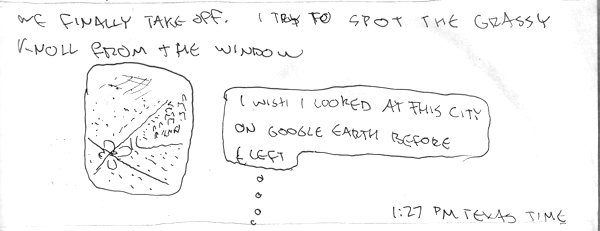 WE FINALLY TAKE OFF. I TRY TO SPOT THE GRASSY
KNOLL FROM THE WINDOW
I WISH I LOOKED AT THIS CITY
ON GOOGLE EARTH BEFORE
I LEFT
1:27 PM TEXAS TIME